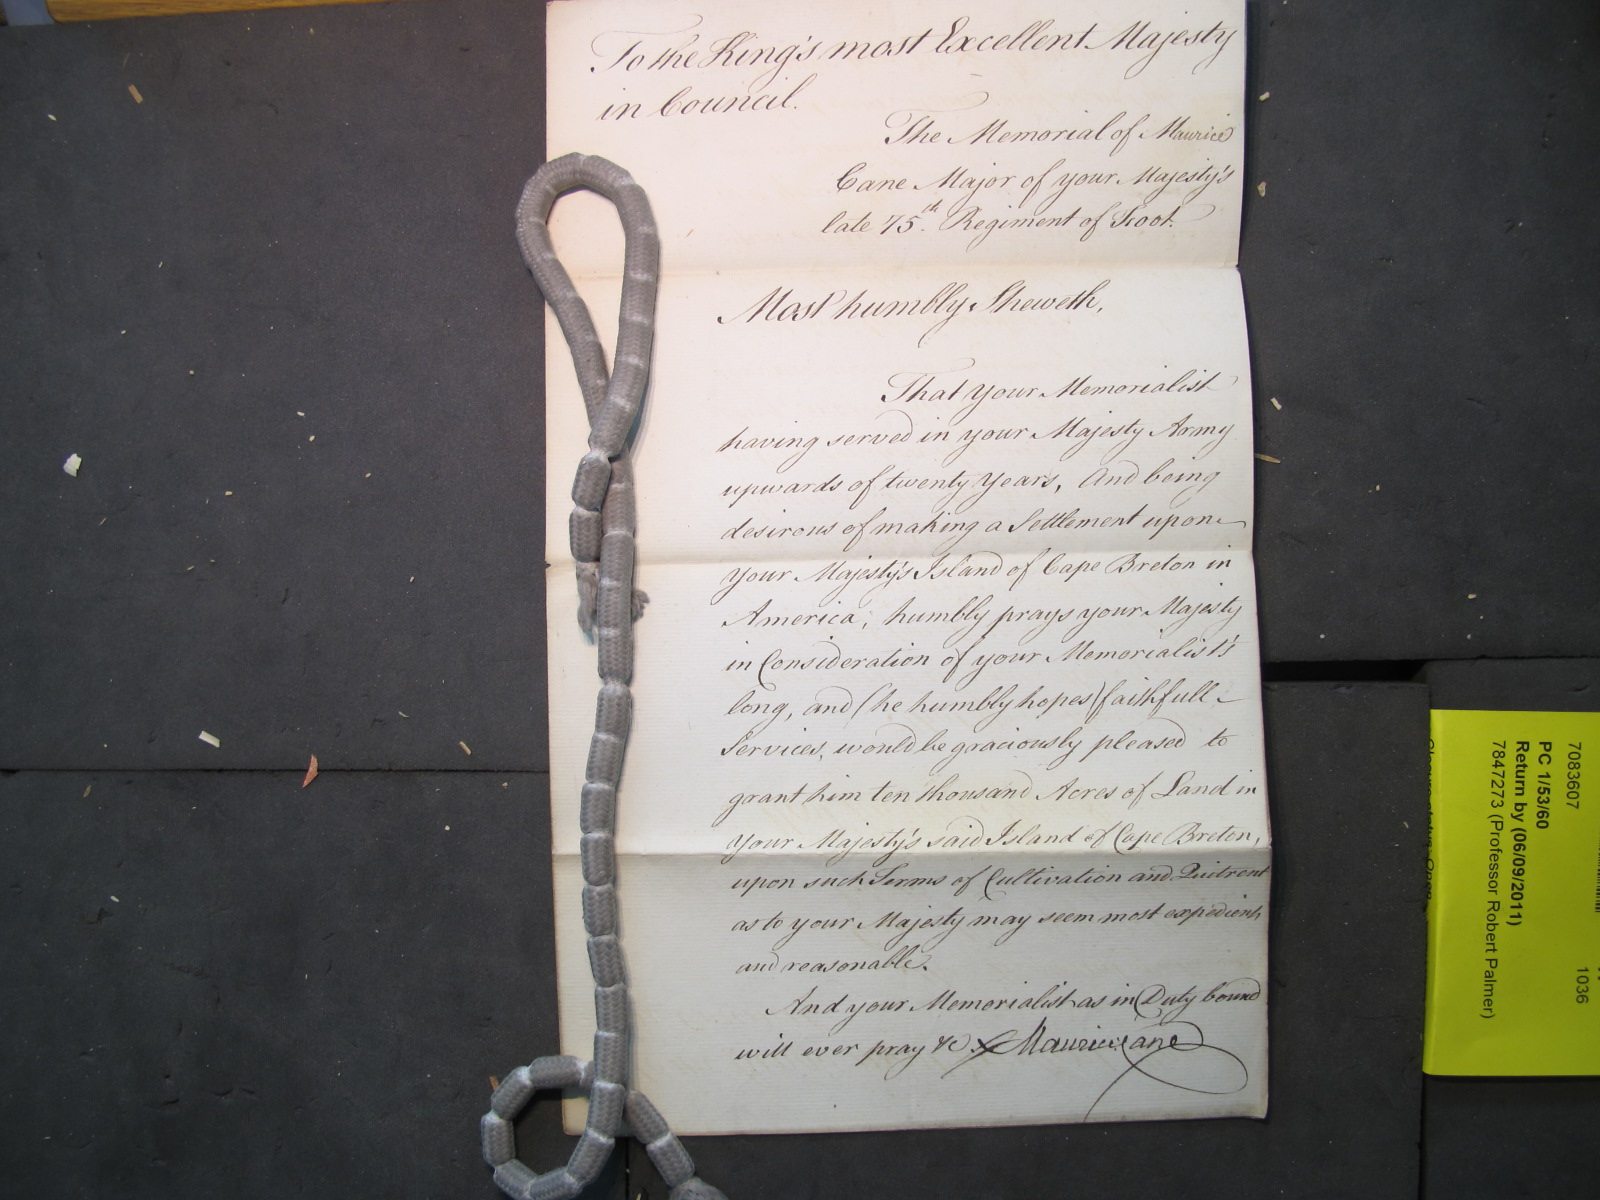 To the King's most Excellent Majesty
in Council.
The Memorial of Maurice
Cane Major of your Majesty's
late 75th. Regiment of Foot.
Most humbly Sheweth,
That your Memorialist
having served in your Majesty Army
upwards of twenty Years, And being
desirous of making a Settlement upon
your Majesty's Island of Cape Breton in
America; humbly prays your Majesty
in Consideration of your Memorialist's
long, and (he humbly hopes) faithfull
Services, would be graciously pleased to
grant him ten thousand Acres of Land in
your Majesty's said Island of Cape Breton,
upon such Terms of Cultivation and Quitrent
as to your Majesty may seem most expedient,
and reasonable.
And your Memorialist as in Duty bound
will ever pray &c. Maurice Cane
7083607
PC 1/53/60
Return by (06/09/2011)
7847273 (Professor Robert Palmer)
1036